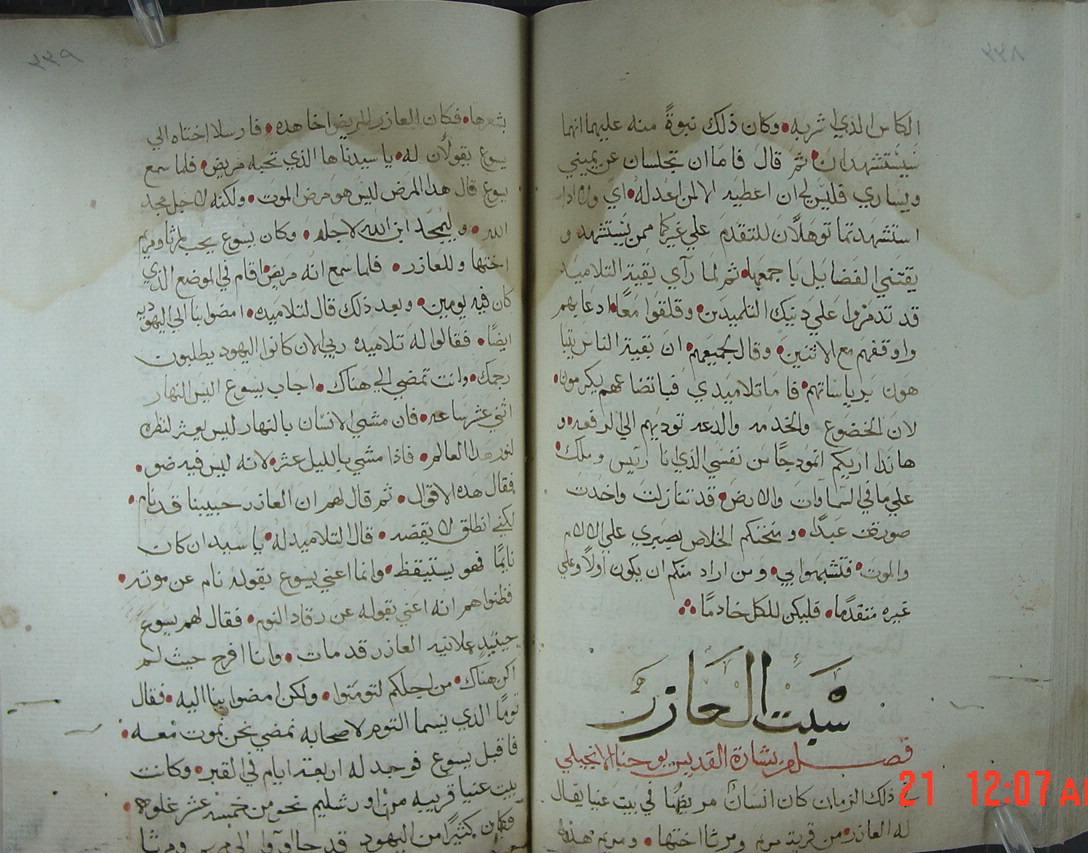 ٣٣٨
الكاس الذي اشربه • وكان ذلك نبوةً منه عليهما انهما
سيستشهدان • ثم قال فاما ان تجلسان عن يميني
ويساري فليس لي ان اعطيه الا لمن اعد له • اي ولا اذا
استشهدتما توهلان للتقدم علي غيركما ممن يستشهد و
يقتني الفضايل يا جمعها • ثم لما راي بقية التلاميد
قد تدمروا علي دنيك التلميدين • وقلقوا معًا • ادعا بهم
واوقفهم مع الاتنين • وقال لجميعهم • ان بقية الناس يتبا
هون برياساتهم • فاما تلاميدي فباتضاعهم يكرمون •
لان الخضوع والخدمه والدعه توديهم الي الرفعه • و
هاندا اريكم انمودجًا من نفسي الذي انا رئيس وملك •
علي ما في السماوات والارض • قد تنازلت واخدت
صورة عبدًا • ومنحتكم الخلاص بصبري علي الالام
والموت • فتشبهوا بي • ومن اراد منكم ان يكون اولًا وعلي
غيره متقدمًا • فليكن للكل خادمًا
سبت العازر
فصل من بشارة القديس يوحنا الانجيلي
ذلك الزمان كان انسان مريضًا في بيت عنيا يقال
له العازر • من قرية مريم ومرثا اختها • ومريم هذه
٣٣٩
بشعرها • فكان العازر المريض اخا هده • فارسلا اختاه الي
يسوع يقولان له • يا سيدنا ها الذي تحبه مريض • فلما سمع
يسوع قال هدا المرض ليس هو مرض الموت • ولكنه لاجل مجد
الله • وليمجد ابن الله لاجله • وكان يسوع يحب لمرثا ومريم
اختها وللعازر • فلما سمع انه مريض اقام في الموضع الذي
كان فيه يومين • وبعد ذلك قال لتلاميده • امضوا بنا الي اليهوديه
ايضًا • فقالوا له تلاميده ربي الان كانوا اليهود يطلبون
رجمك • وانت تمضي الي هناك • اجاب يسوع اليس النهار
اثني عشر ساعه • فان مشي الانسان بالنهار ليس يعثر لنظره
لنور هدا العالم • فاذا مشي بالليل عثر • لانه ليس فيه ضو •
فقال هده الاقوال • ثم قال لهم ان العازر حبيبنا قد نام
لكني انطلق لايقضه • قال التلاميد له • يا سيد ان كان
نايمًا فهو يستيقظ • وانما اعني يسوع بقوله نام عن موته •
فظنوا هم انه اعني بقوله عن رقاد النوم • فقال لهم يسوع
حينيد علانيه العازر قد مات • وانا افرح حيث لم
اكن هناك • من اجلكم لتومنوا • ولكن امضوا بنا اليه • فقال
توما الذي يسما التوم لاصحابه نمضي نحن نموت معه •
فاقبل يسوع فوجد له اربعة ايام في القبر • وكانت
بيت عنيا قريبه من اورشليم نحو من خمسة عشر غلوه •
فكان كثيرًا من اليهود قد جاووا الي مريم ومرثا
21 12:07 AM